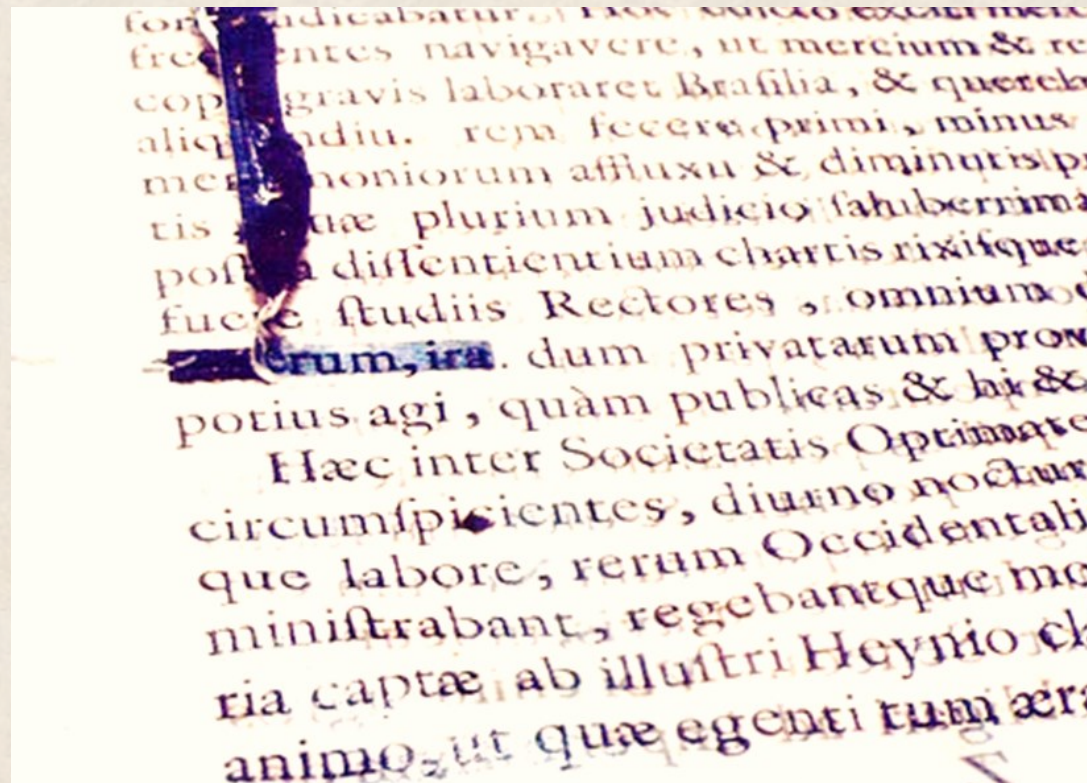 navigavere, ut mercium &
gravis laboraret Braſilia, & querel
rem fecere primi, minus
moniorum affluxu & diminutis
tis quæ plurium judicio ſaluberrima
diſſentientium chartis rixiſque
fuere ſtudiis Rectores, omnium
erum, ira. dum privatarum
potius agi, quàm publicas & hi &
Hæc inter Societatis Optimate
circumſpicientes, diurno noctur
que labore, rerum Occidentali
miniſtrabant, regebantque
ria captæ ab illuſtri Heynio
animo, ut quæ egenti tum æra